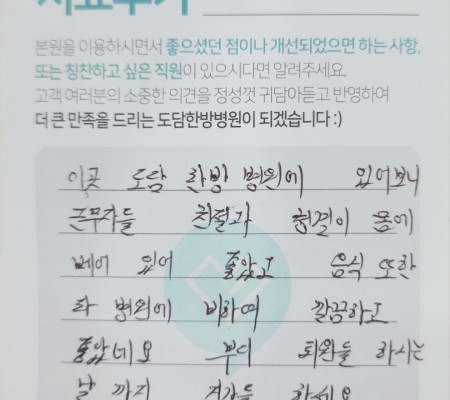 치료후기
본원을 이용하시면서 좋으셨던 점이나 개선되었으면 하는 사항,
또는 칭찬하고 싶은 직원이 있으시다면 알려주세요.
고객 여러분의 소중한 의견을 정성껏 귀담아듣고 반영하여
더 큰 만족을 드리는 도담한방병원이 되겠습니다 :)
이곳 도담 한방 병원에 있어보니
근무자들 친절과 청결이 몸에
베어 있어 좋았고 음식 또한
타 병원에 비하여 깔끔하고
좋았네요 부디 퇴원들 하시는
날 까지 하세요